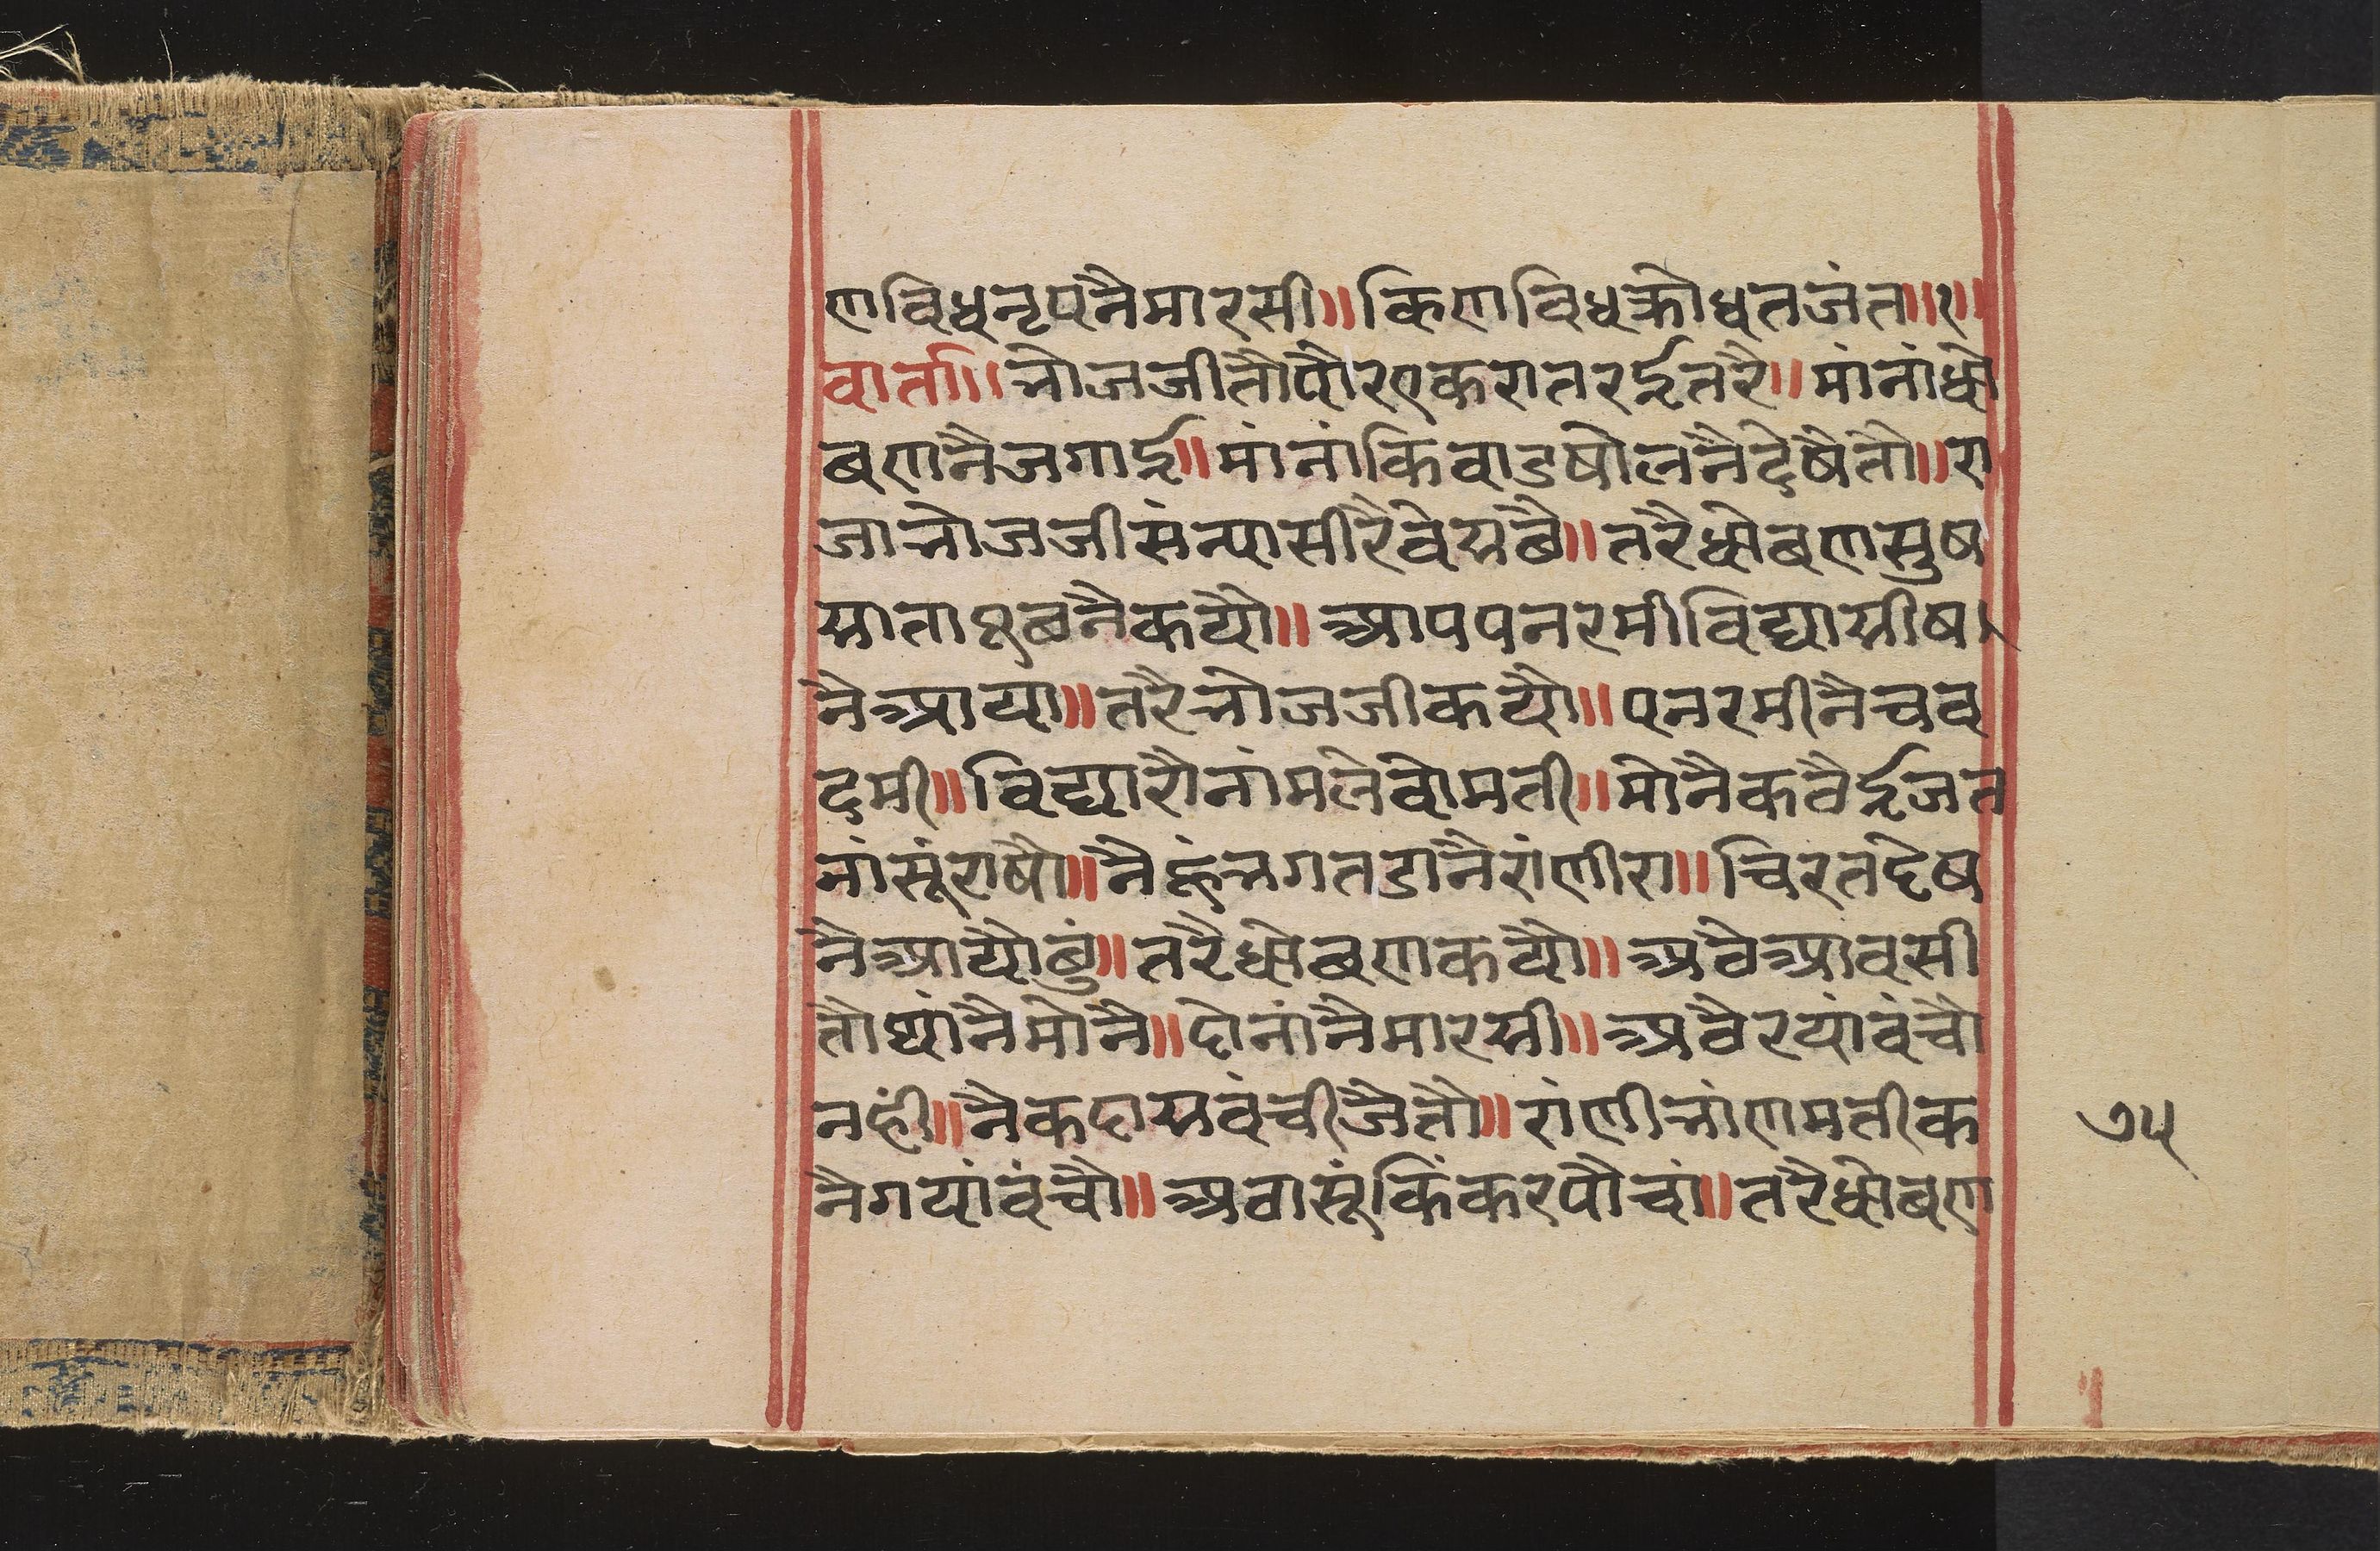 णविधनृपनैमारसी॥किणविधक्रोधतजंत॥१॥
वार्ता॥भोजजीतौपौरएकरातरईतरै॥मांनांधो
बणनैजगाई॥मांनांकिवाडषोलनैदेषैतौ॥रा
जाभोजजीसंन्यासीरैवेसबै॥तरैधोबणसुष
साताऽबनैकयौ॥आपपनरमीविद्यासीष
नैआया॥तरैभोजजीकयौ॥पनरमीनैचव
दमी॥विद्यारौनांमलेवोमती॥मोनैकवैईजत
नांसूंराषौ॥नैहूंभगतडानैरांणीरा॥चिरतदेष
नैआयौबुं॥तरैधोबणकयौ॥अवेआवसी
तौथांनैमोनै॥दोनांनैमारसी॥अवैरयांवंचौ
नहीं॥नैकदासवंचीजैतौ॥रांणीभांणमतीक
नैगयांवंचौ॥अवासूंकिंकरपौचां॥तरैधोबण
७५